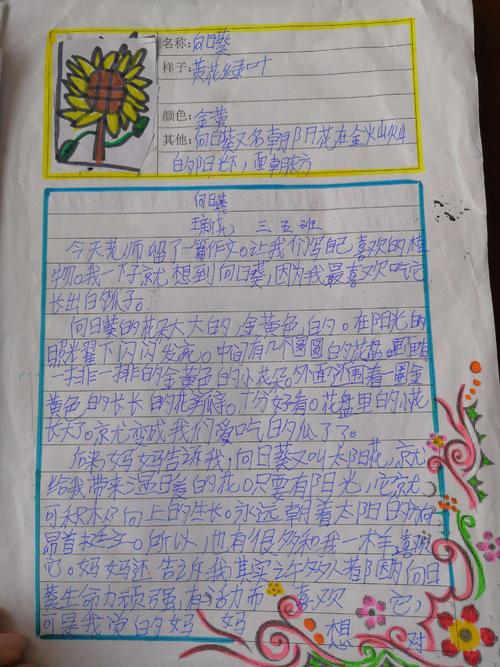 名称: 向日葵
样子: 黄花绿叶
颜色: 金黄
其他: 向日葵又名朝阳花在金火
的阳光下,面朝东方
向日葵
三五班
今天老师留了一篇作文。让我们写自己喜欢的植
物。我一下子就想到向日葵,因为我最喜欢吃它
长出的瓜子。
向日葵的花朵大大的,金黄色的。在阳光的
照耀下闪闪发亮。中间有几个圆圆的花盘。
一排一排的金黄色的小花朵。外面还围着一圈金
黄色的长长的花瓣。十分好看。花盘里的小花
长大了。就变成我们爱吃的瓜子了。
后来妈妈告诉我,向日葵又叫太阳花,就
给我带来温暖的花。只要有阳光,它就
可积极向上的生长。永远朝着太阳的方向
昂首。所以,也有很多和我一样喜欢
它。妈妈还告诉我其实许多人都因向日
葵生命力顽强,有活力而 喜欢 它,
可是我觉的妈 妈 想 对